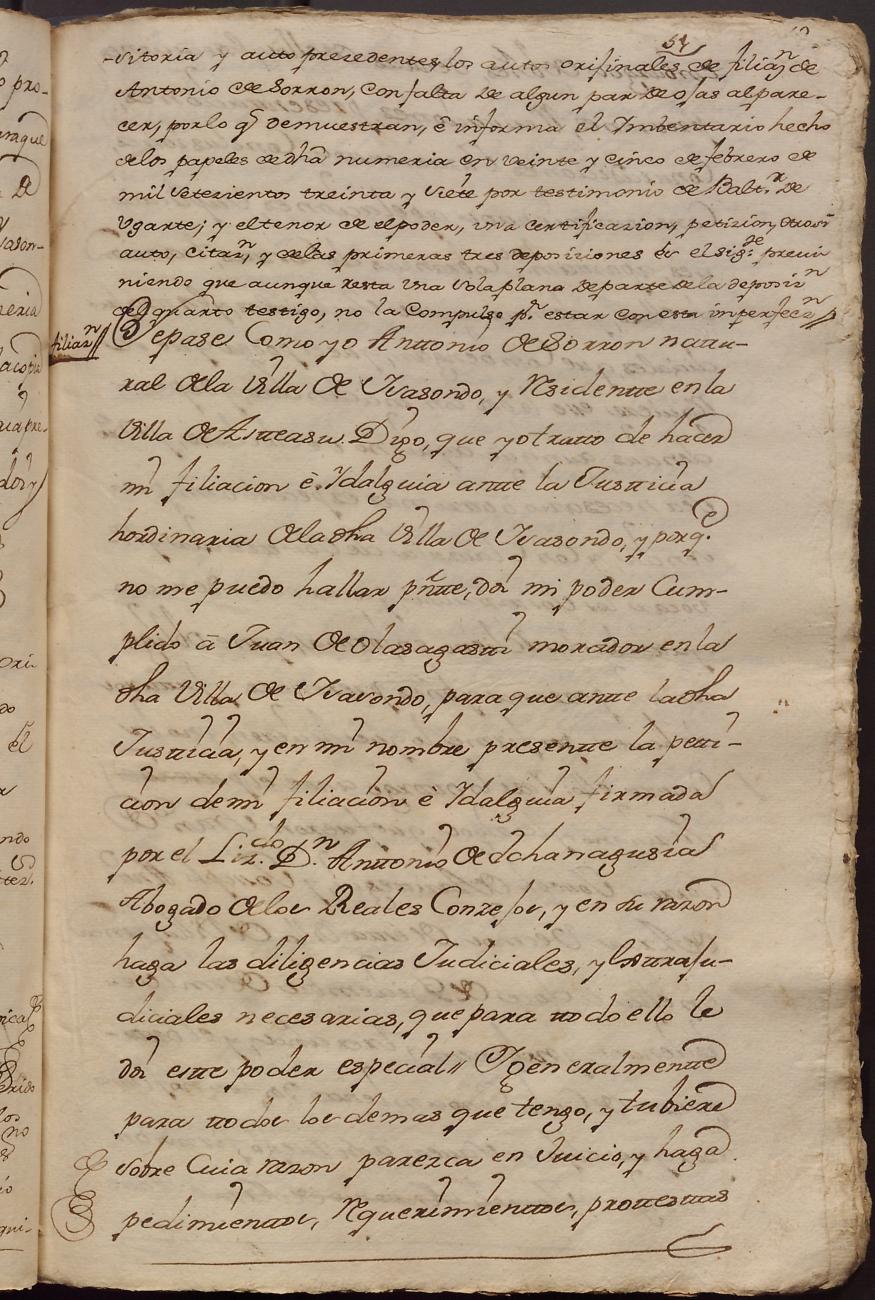 51
-sitoria y auto presedentes, los autos orijinales de filiaz.n de
Antonio de Sorron, con falta de algun par de ojas al pare-
cer, por lo q.e demuestran, è informa el Imbentario hecho
de los papeles de dha numeria en veinte y cinco de febrero de
mil setezientos treinta y siete por testimonio de Balt.r de
Vgarte; y el tenor de el poder, una certificazion, petizion, otrosi
auto, citaz.n, y de las primeras tres deposiziones es el sig.te previ-
niendo que aunque resta una sola plana de parte de la deposiz.n
del quarto testigo, no la Compulso p.r estar con esta imperfecz.n //
filiaz.n // Sepase Como yo Anttonio de Sorron nattu-
ral de la Villa de Ivasondo, y Residentte en la
Villa de Astteasu. Digo, que yo tratto de hacer
mi filiacion è Ydalguia antte la Justticia
hordinaria de la dha Villa de Ivasondo, y porq.e
no me puedo hallar pñtte, doi mi poder Cum-
plido à Juan de Olasagastti morador en la
dha Villa de Ivasondo, para que antte la dha
Justticia, y en mi nombre presentte la petti-
cion de mi filiacion è Ydalguia firmada
por el Liz.do D.n Anttonio de Echanagusia
Abogado de los Reales Conzejos, y en su razon
haga las diligencias Judiciales, y Exttraju-
diciales necesarias, que para ttodo ello le
doi estte poder especial // Y generalmentte
para ttodos los demas que tengo, y tubiere
sobre Cuia razon parezca en Juicio, y haga
pedimienttos, Requerimienttos, prottesttas